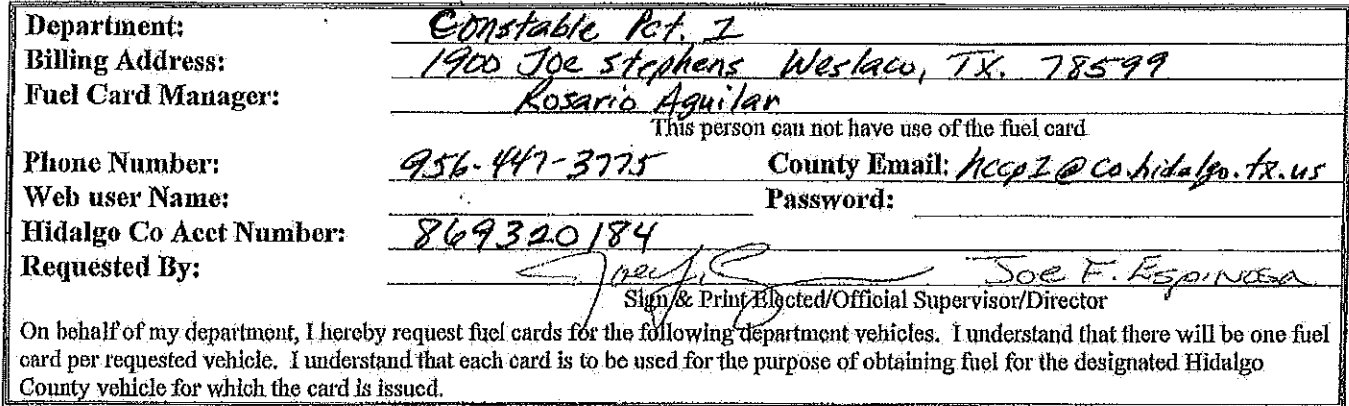 Department: Constable Pct. 1
Billing Address: 1900 Joe Stephens Weslaco, TX. 78599
Fuel Card Manager: Rosario Aguilar
This person can not have use of the fuel card
Phone Number: 956-447-3775 County Email: hccp1@co.hidalgo.tx.us
Web user Name: Password:
Hidalgo Co Acct Number: 869320184
Requested By: Joe F. Espinosa
Sign & Print Elected/Official Supervisor/Director
On behalf of my department, I hereby request fuel cards for the following department vehicles. I understand that there will be one fuel
card per requested vehicle. I understand that each card is to be used for the purpose of obtaining fuel for the designated Hidalgo
County vehicle for which the card is issued.